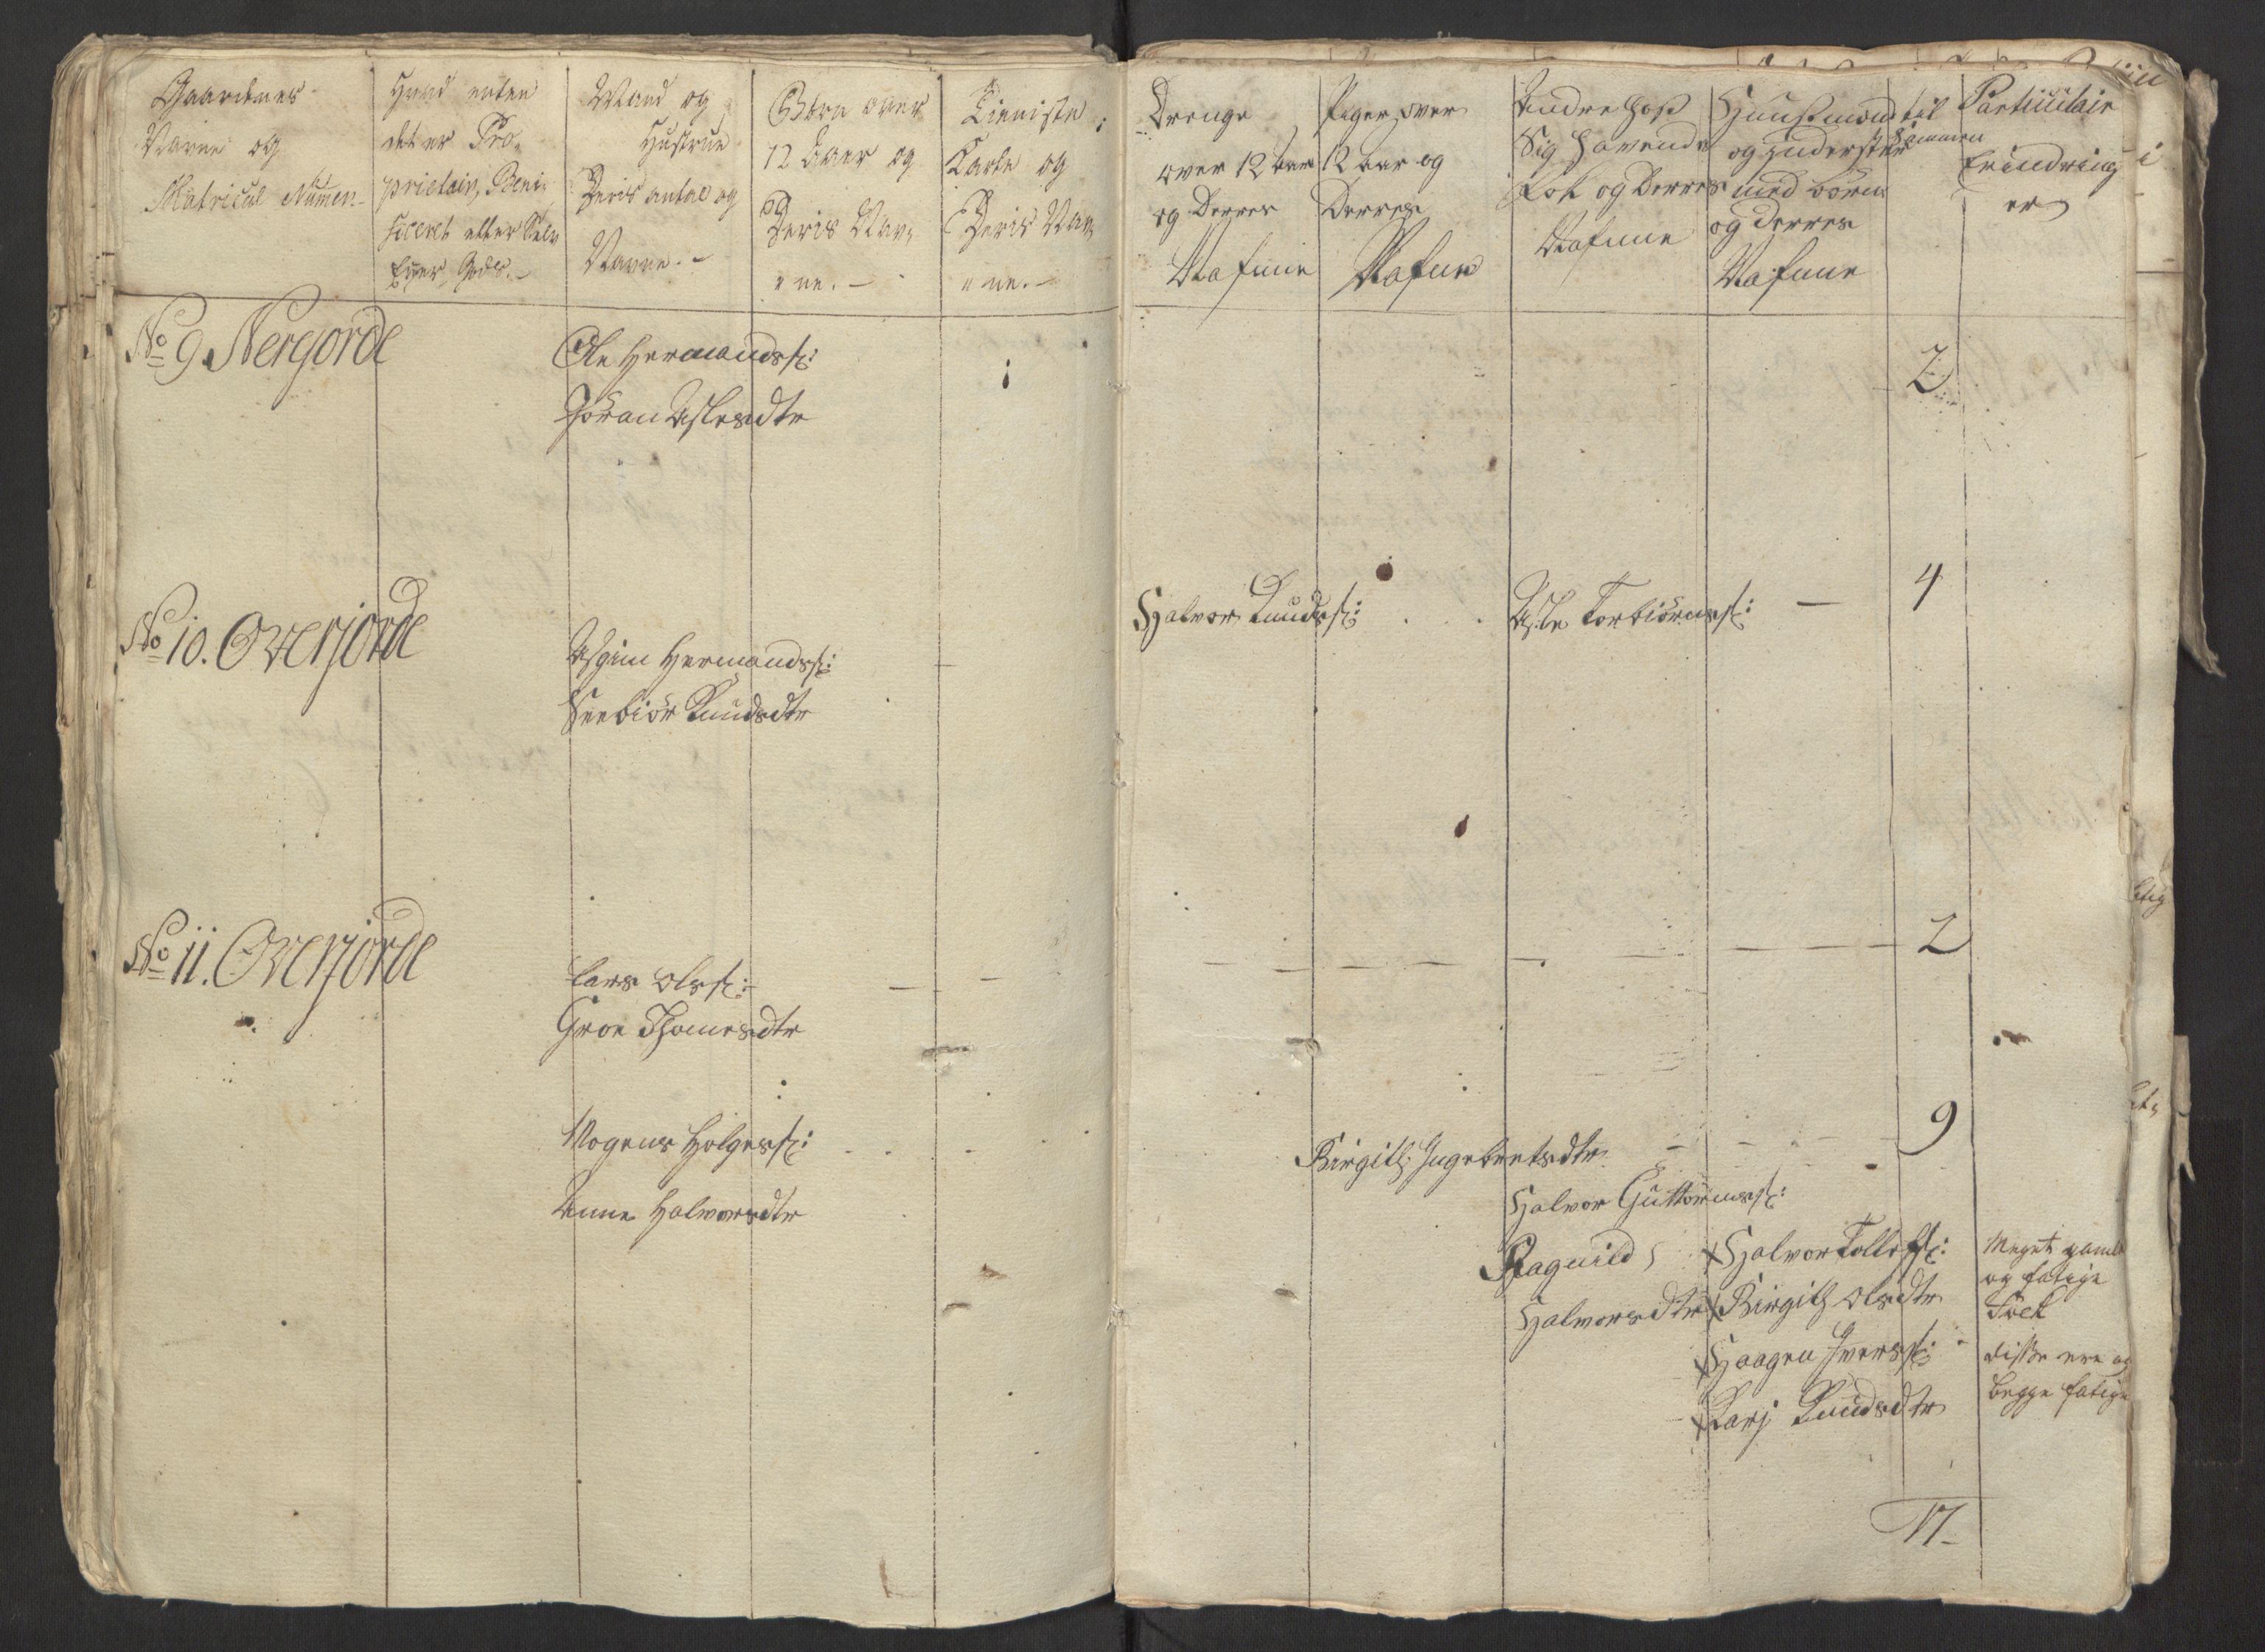 Gaardenes
Navne og
Matricul Numer.
Hvad enten
det er Pro-
prietair, Beni-
ficeret eller Selv
Eyer Gods.
Mand og
Hustrue
Deris antal og
Navne.
Børn over
12 Aaer og
Deris Nav-
ne.
Tieniste
Karle og
Deris Nav-
ne.
Drenge
over 12 aar
og Derres
Nafune
Piger over
12 aar og
Derres
Nafun
Andre hoß
Sig havende
Folk og Derres
Nafune
Huusmænd
og Inderster
med børn
og Derres
Nafune
til
sammen
Particulair
Erindring
er
No 9 Nergorde
Ole Hermandss:
Jöran Aslesdtr
2
No 10. Overjorde
Asgim Hermandss:
Senbiör Knudsdtr
Halvor Knudss:
Asle Torbiörnss: —
4
No 11. Overjorde
Lars Olss:
Groe Thomesdtr
2
Mogens Holgerss:
Anne Halvorsdtr
Birgith Ingebretsdtr
9
Halvor Guttormss:
Ragnild
Halvorsdtr
x Halvor Tollefss:
x Birgith Olsdtr
x Haagen Iverss:
x Karj Knudsdtr
Meget gaml
og fatige
Folk
disse ere og
begge fatige
17